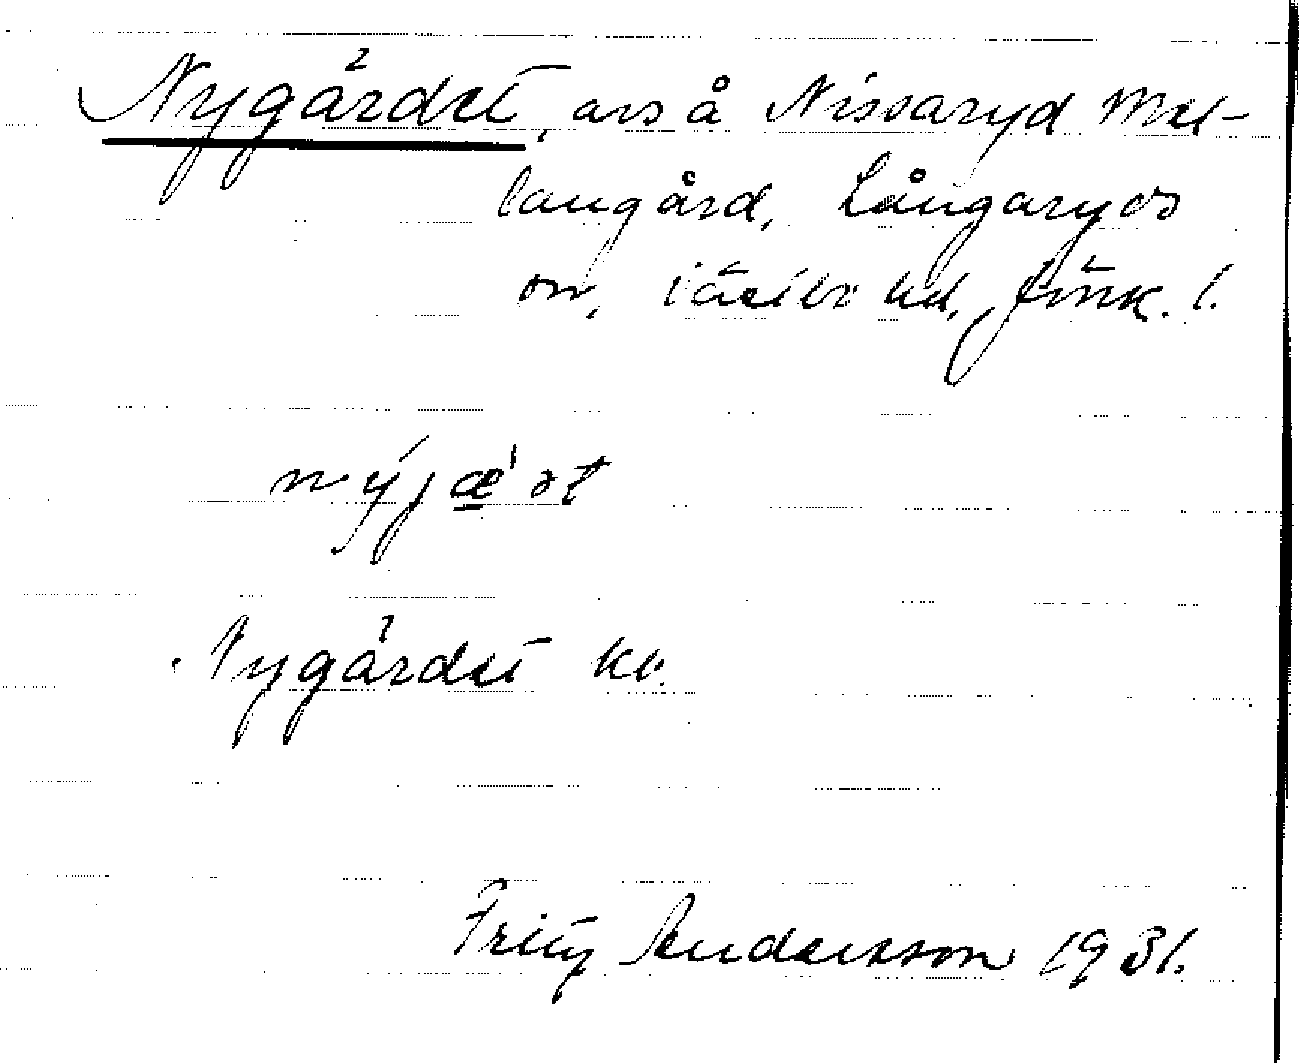 Nygärdet, avs å Nissaryd Mel-
langård, Långaryds
sn, Västbo hd, Jönk. l.
nýjæ'ət
Nygärdet kv.
Fritz Andersson 1931.